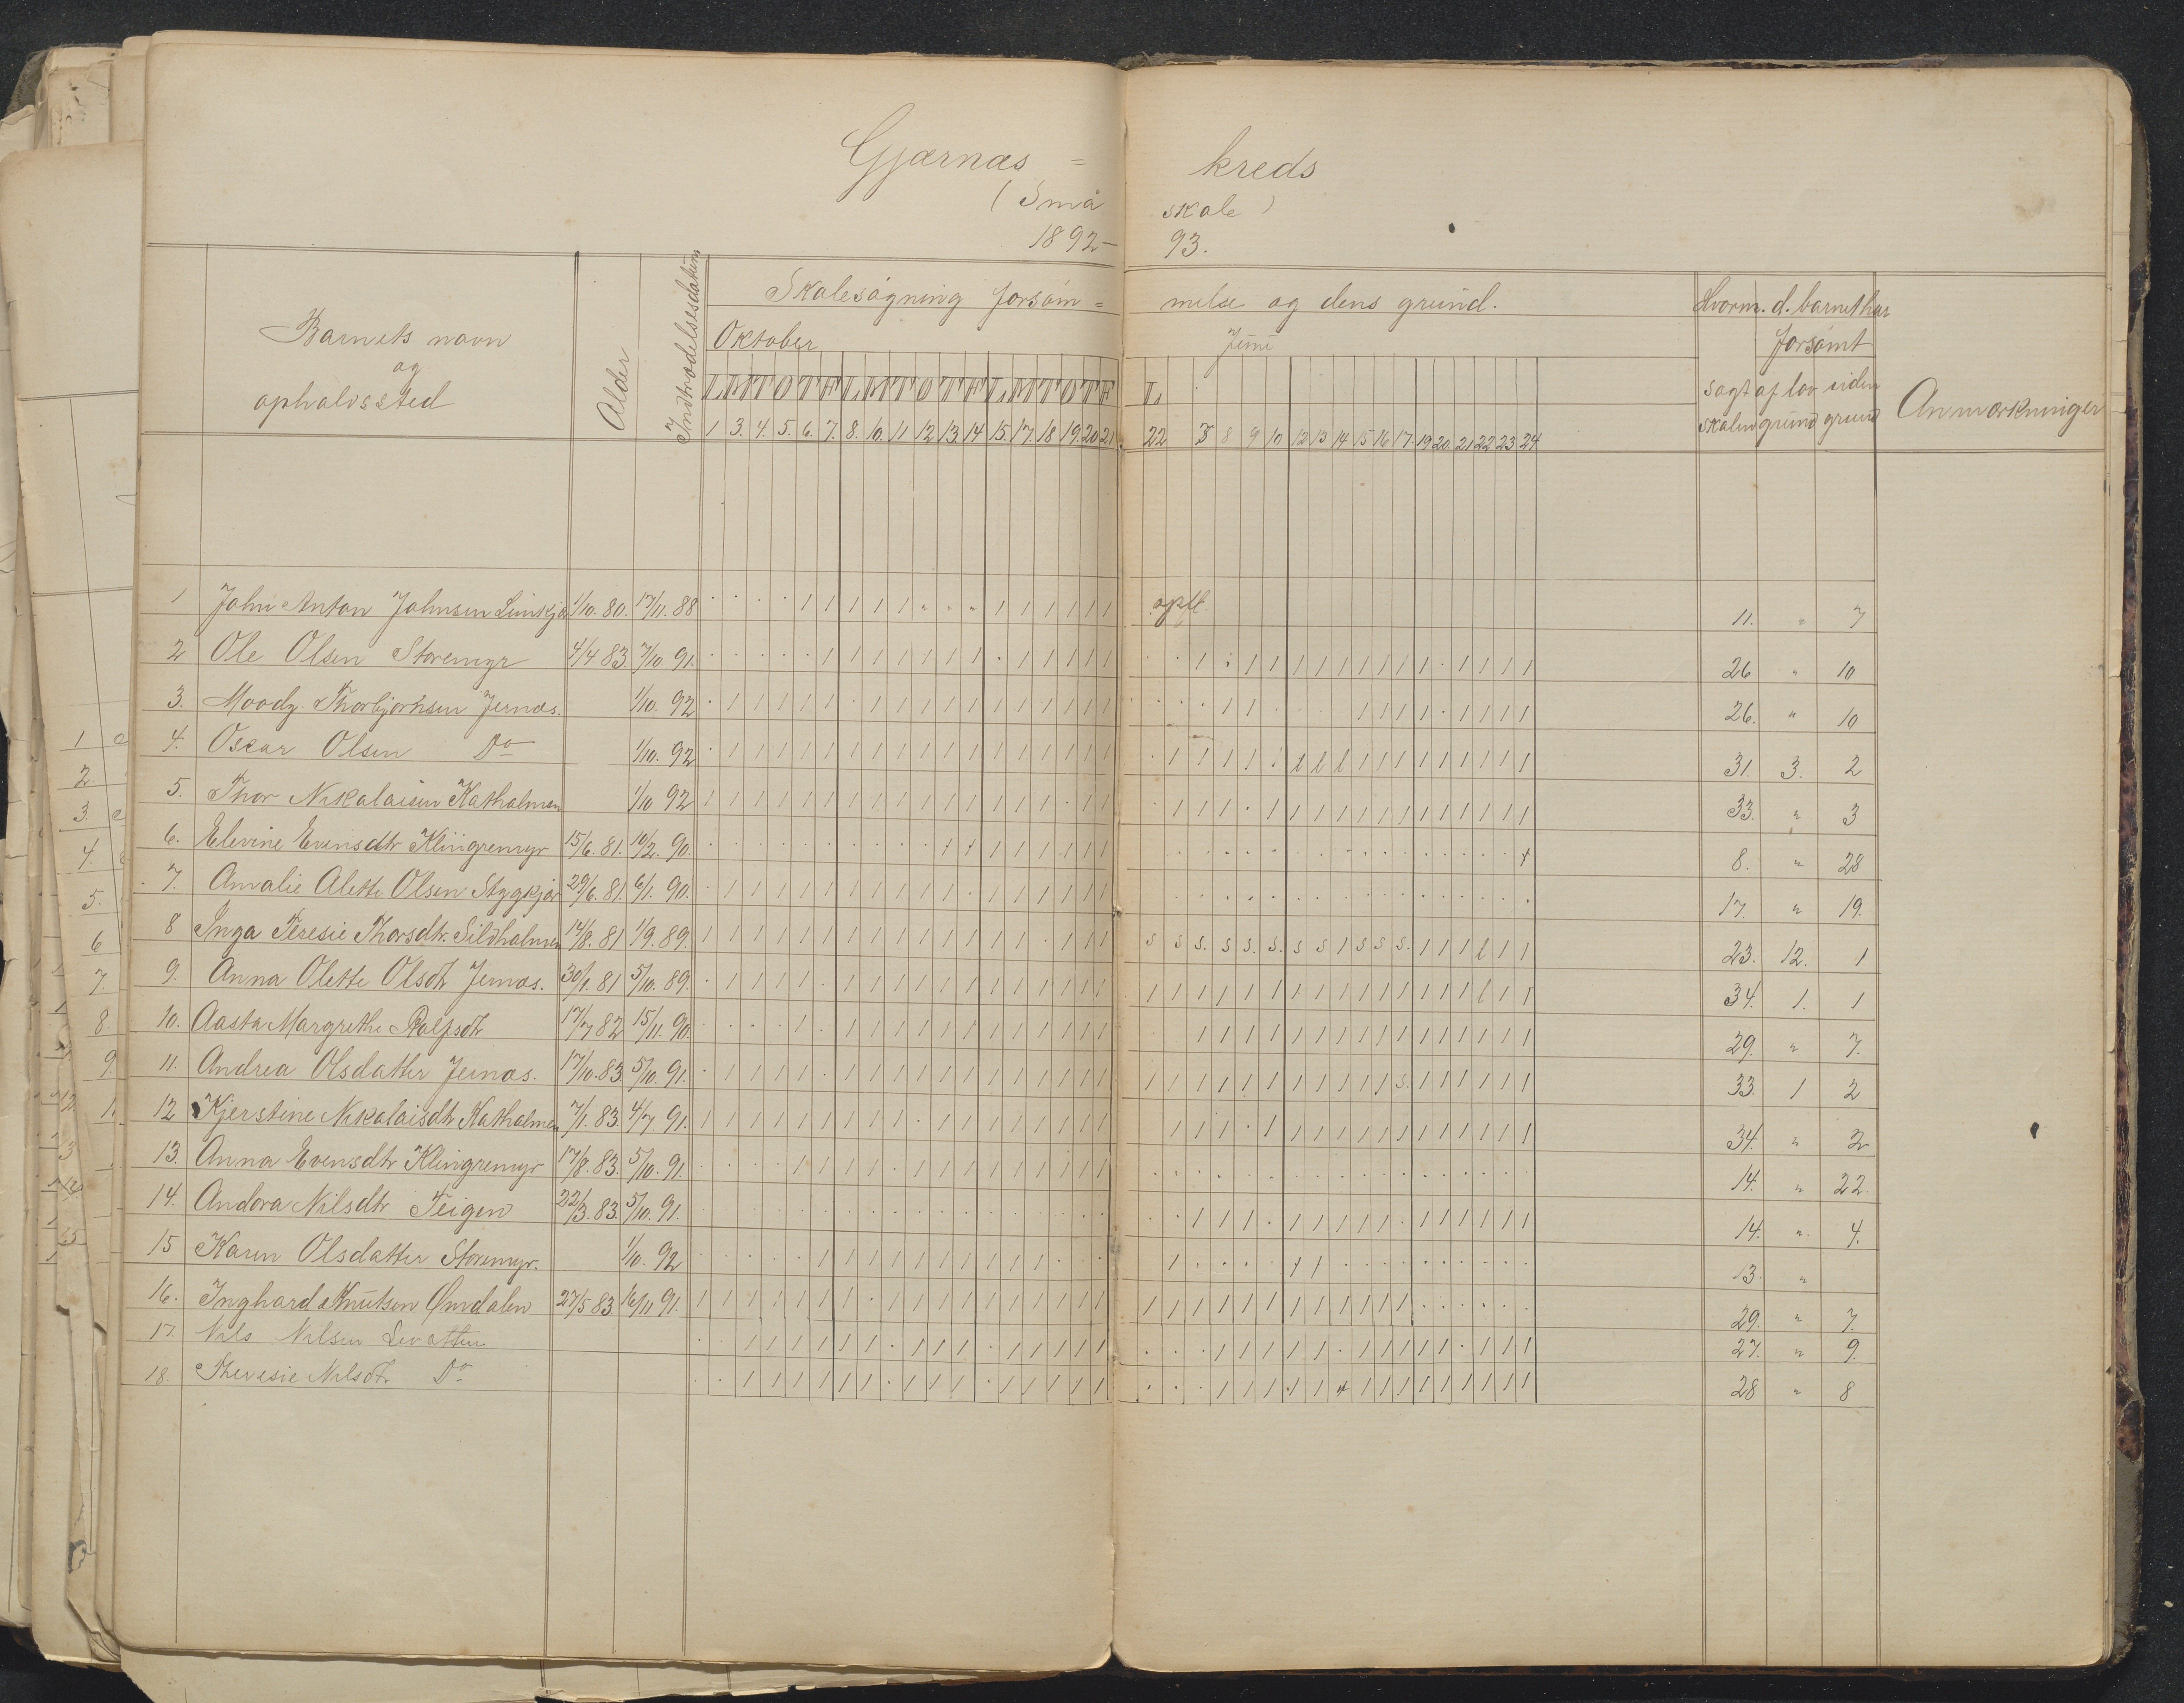 Gjærnæs = kreds
(Små skole)
1892-93.
Barnets navn og opholdssted
Alder
Indtrædelsesdatum
Skolesøgning forsøm= melse og dens grund.
Oktober
Juni
L M T O T F L M T O T F L M T O T F L
1 3. 4. 5. 6. 7. 8. 10. 11 12 13. 14 15. 17. 18 19. 20 21 22 8 9 10 12 13 14 15 16 17. 19 20. 21 22 23 24
Hvorm. d. barnet har
forsømt
søgt af lov uden
skolen grund grund
Anmærkninger
1 John Anton Johnsen 1/10. 80. 17/11. 88 11. " 7
2 Ole Olsen Storemyr 4/4 83. 7/10. 91. 26 " 10
3. Moody Thorbjørnsen Jernæs. 1/10. 92 26. " 10
4. Oscar Olsen Do 1/10. 92 31. 3. 2
5. Thor Nikolaisen Katholmen 1/10 92 33. " 3
6. Elevine Evensdtr Klingremyr 15/6. 81. 10/2. 90. 8. " 28
7. Amalie Alette Olsen Stygkjær 29/6. 81. 6/1. 90. 17. " 19.
8 Inga Teresie Thorsdtr. Sildholmen 14/8. 81 1/9. 89. 23. 12. 1
9. Anna Olette Olsdtr Jernæs. 30/1. 81 5/10. 89. 34. 1. 1
10. Aasta Margrethe Rolfsdtr 17/7 82 15/11. 90. 29. " 7.
11. Andrea Olsdatter Jernæs. 17/10. 83. 5/10. 91. 33. 1 2
12 Kjerstine Nikolaisdtr Katholmen 7/1. 83. 4/7. 91. 34. " 2
13. Anna Evensdtr Klingremyr 17/8. 83. 5/10. 91. 14. " 22.
14. Andora Nilsdtr Teigen 22/3. 83. 5/10. 91. 14. " 4.
15 Karen Olsdatter Storemyr. 1/10. 92 13. "
16. Inghard Knutsen Omdalen 27/5 83 16/11 91. 29. " 7.
17. Nils Nilsen 27. " 9.
18. Theresie Nilsdtr. Do 28 " 8